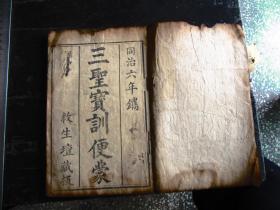 同治六年鐫
三聖寶訓便蒙
救生壇藏板